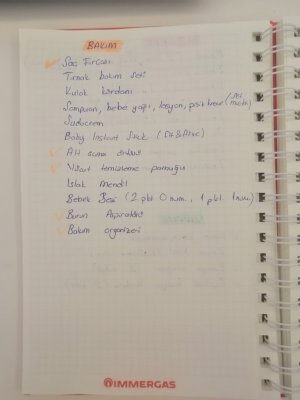 BAKIM
Saç Fırçası
Tırnak bakım seti
Kulak
Şampuan, bebe yağı, losyon, pişik kremi
Sudocrem
Baby Instant Stick
Alt açma örtüsü
Vücut temizleme pamuğu
Islak Mendil
Bebek Bezi (2 pkt 0 num., 1 pkt. 1 num.)
Burun Aspiratörü
Bakım organizeri
IMMERGAS